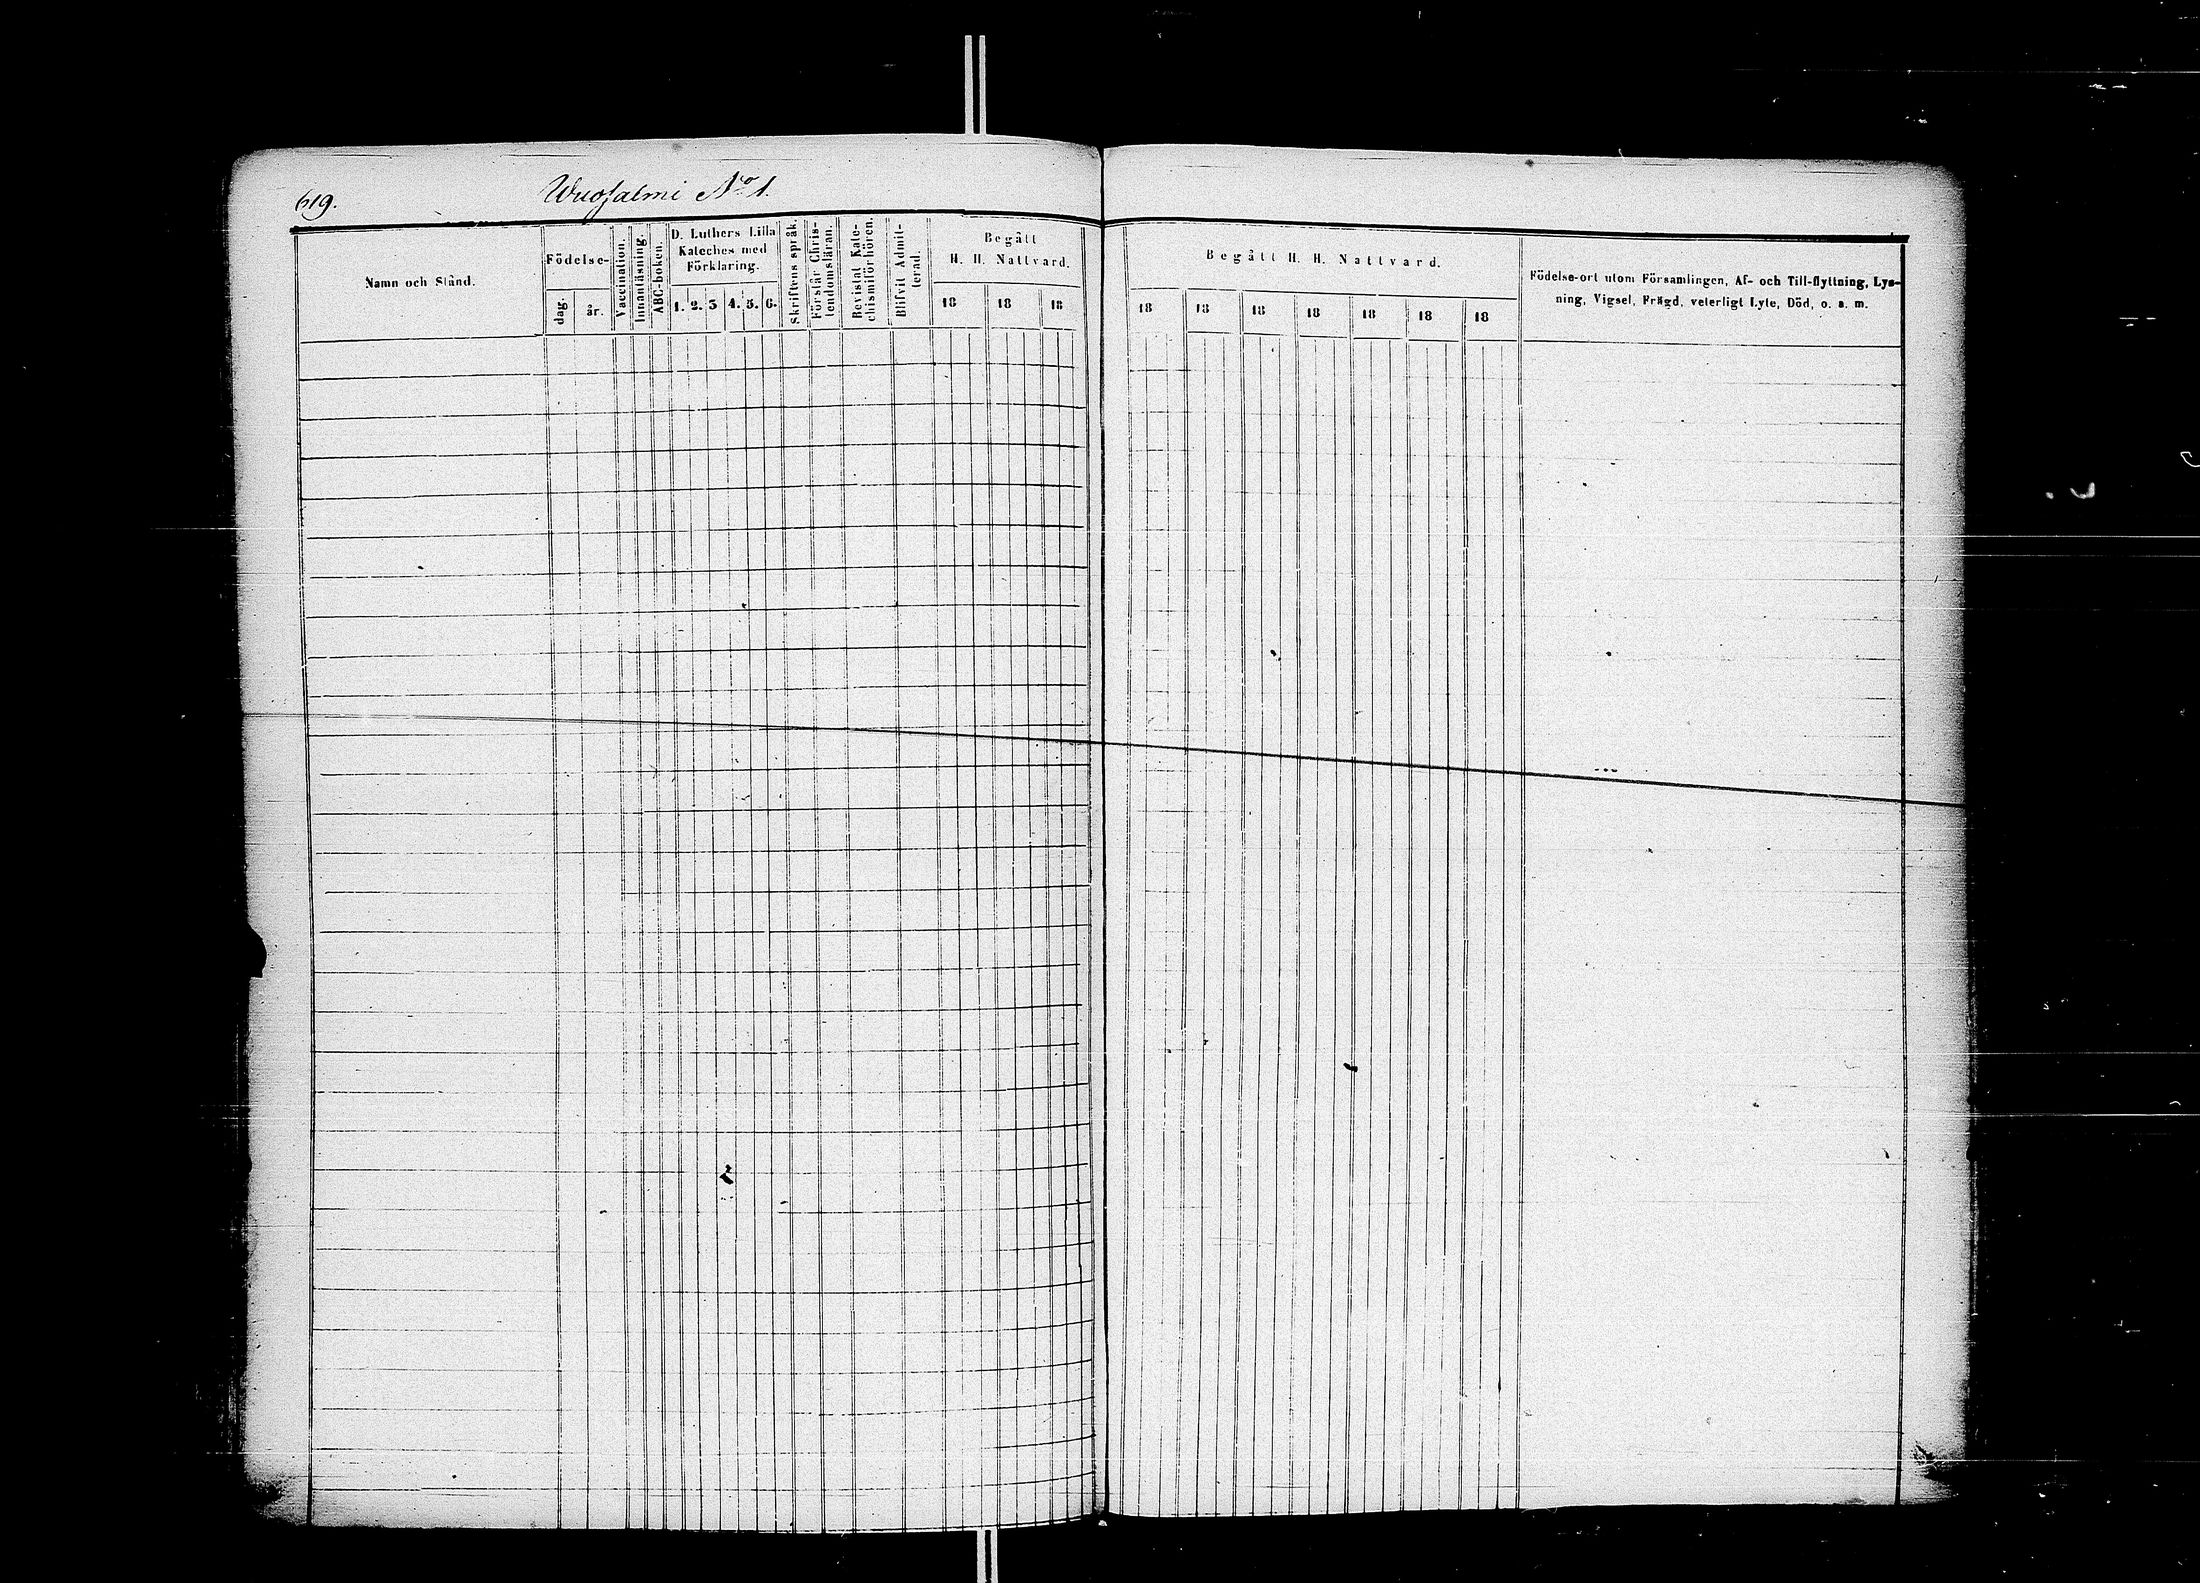 619.
Wuojalmi No 1.
Namn och Stånd.
Födelse-
dag.
år.
Vaccination.
Innanläsning.
ABC-boken.
D. Luthers Lilla
Kateches med
Förklaring.
1. 2. 3 4. 5. 6.
Skriftens språk.
Förstår Chris-
tendomsläran.
Bevistat Kate-
chismiförhören.
Blifvit Admit-
terad.
Begått
H. H. Nattvard.
18 18 18
Begått H. H. Nattvard.
18 18 18 18 18 18 18
Födelse-ort utom Församlingen, Af- och Till-flyttning, Lys-
ning, Vigsel, Frägd, veterligt Lyte, Död, o. s. m.